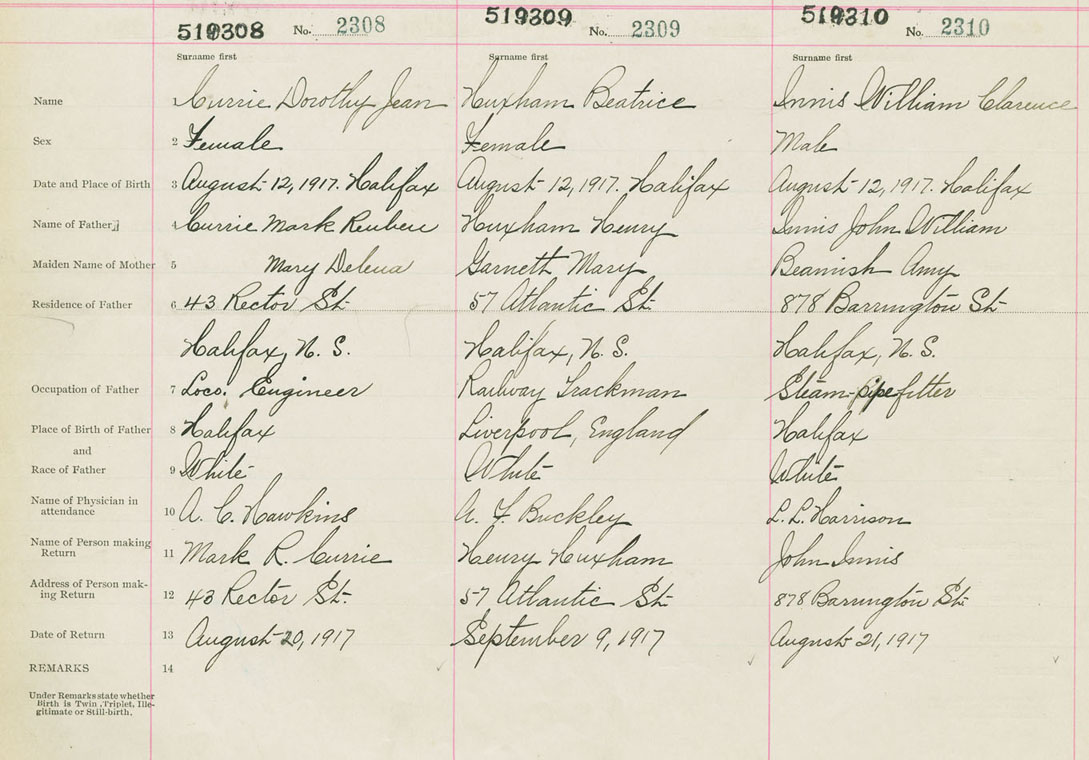 519308 No. 2308 519309 No. 2309 519310 No. 2310
Surname first Surname first Surname first
Name 1 Currie Dorothy Jean Huxham Beatrice Innis William Clarence
Sex 2 Female Female Male
Date and Place of Birth 3 August 12, 1917. Halifax August 12, 1917. Halifax August 12, 1917. Halifax
Name of Father 4 Currie Mark Reuben Huxham Henry Innis John William
Maiden Name of Mother 5 Mary Delena Garnett Mary Beamish Amy
Residence of Father 6 43 Rector St. 57 Atlantic St. 878 Barrington St.
Halifax, N. S. Halifax, N. S. Halifax, N. S.
Occupation of Father 7 Loco. Engineer Railway Trackman Steam-pipefitter
Place of Birth of Father 8 Halifax Liverpool, England Halifax
and
Race of Father 9 White White White
Name of Physician in
attendance 10 A. C. Hawkins A. F. Buckley L. L. Harrison
Name of Person making
Return 11 Mark R. Currie Henry Huxham John Innis
Address of Person mak-
ing Return 12 43 Rector St. 57 Atlantic St. 878 Barrington St.
Date of Return 13 August 20, 1917 September 9, 1917 August 21, 1917
REMARKS 14
Under Remarks state whether
Birth is Twin, Triplet, Ille-
gitimate or Still-birth.